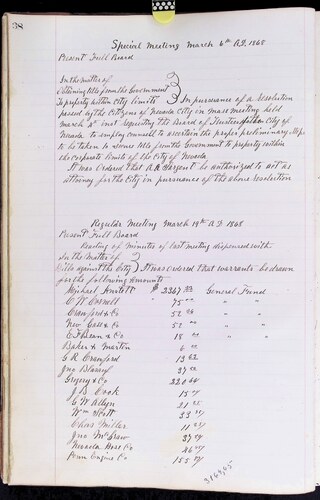 38
Special Meeting March 6th A.D. 1868
Present Full Board
In the matter of
Obtaining title from the Government
To property within City limits } In pursuance of a Resolution
passed by the Citizens of Nevada City in Mass Meeting held
March 2d inst requesting the Board of Trustees of the City of
Nevada to employ councill to ascertain the proper preliminary steps
to be taken to secure title from the Government to property within
the corporate limits of the City of Nevada.
It was Ordered that A. A. Sargent be authorized to act as
attorney for the City in pursuance of the above resolution
Regular Meeting March 19th A.D. 1868
Present Full Board
Reading of minutes of last meeting dispensed with
In the Matter of
Bills against the City } It was ordered that warrants be drawn
for the following Amounts
Michael $ 2367 General Fund
C W 75 " "
Crawford & Co 52 " "
New Gas & Co 52 " "
E F Bean & Co 18 " "
Baker & Morton 6
G R Crawford 13 62
Jno 37
Gregory & Co 220
J S Cook 15
C W 21
Wm Scott 33
Chas Miller 11
Jno McGraw 37
Nevada Hose Co
Penn Engine Co 155